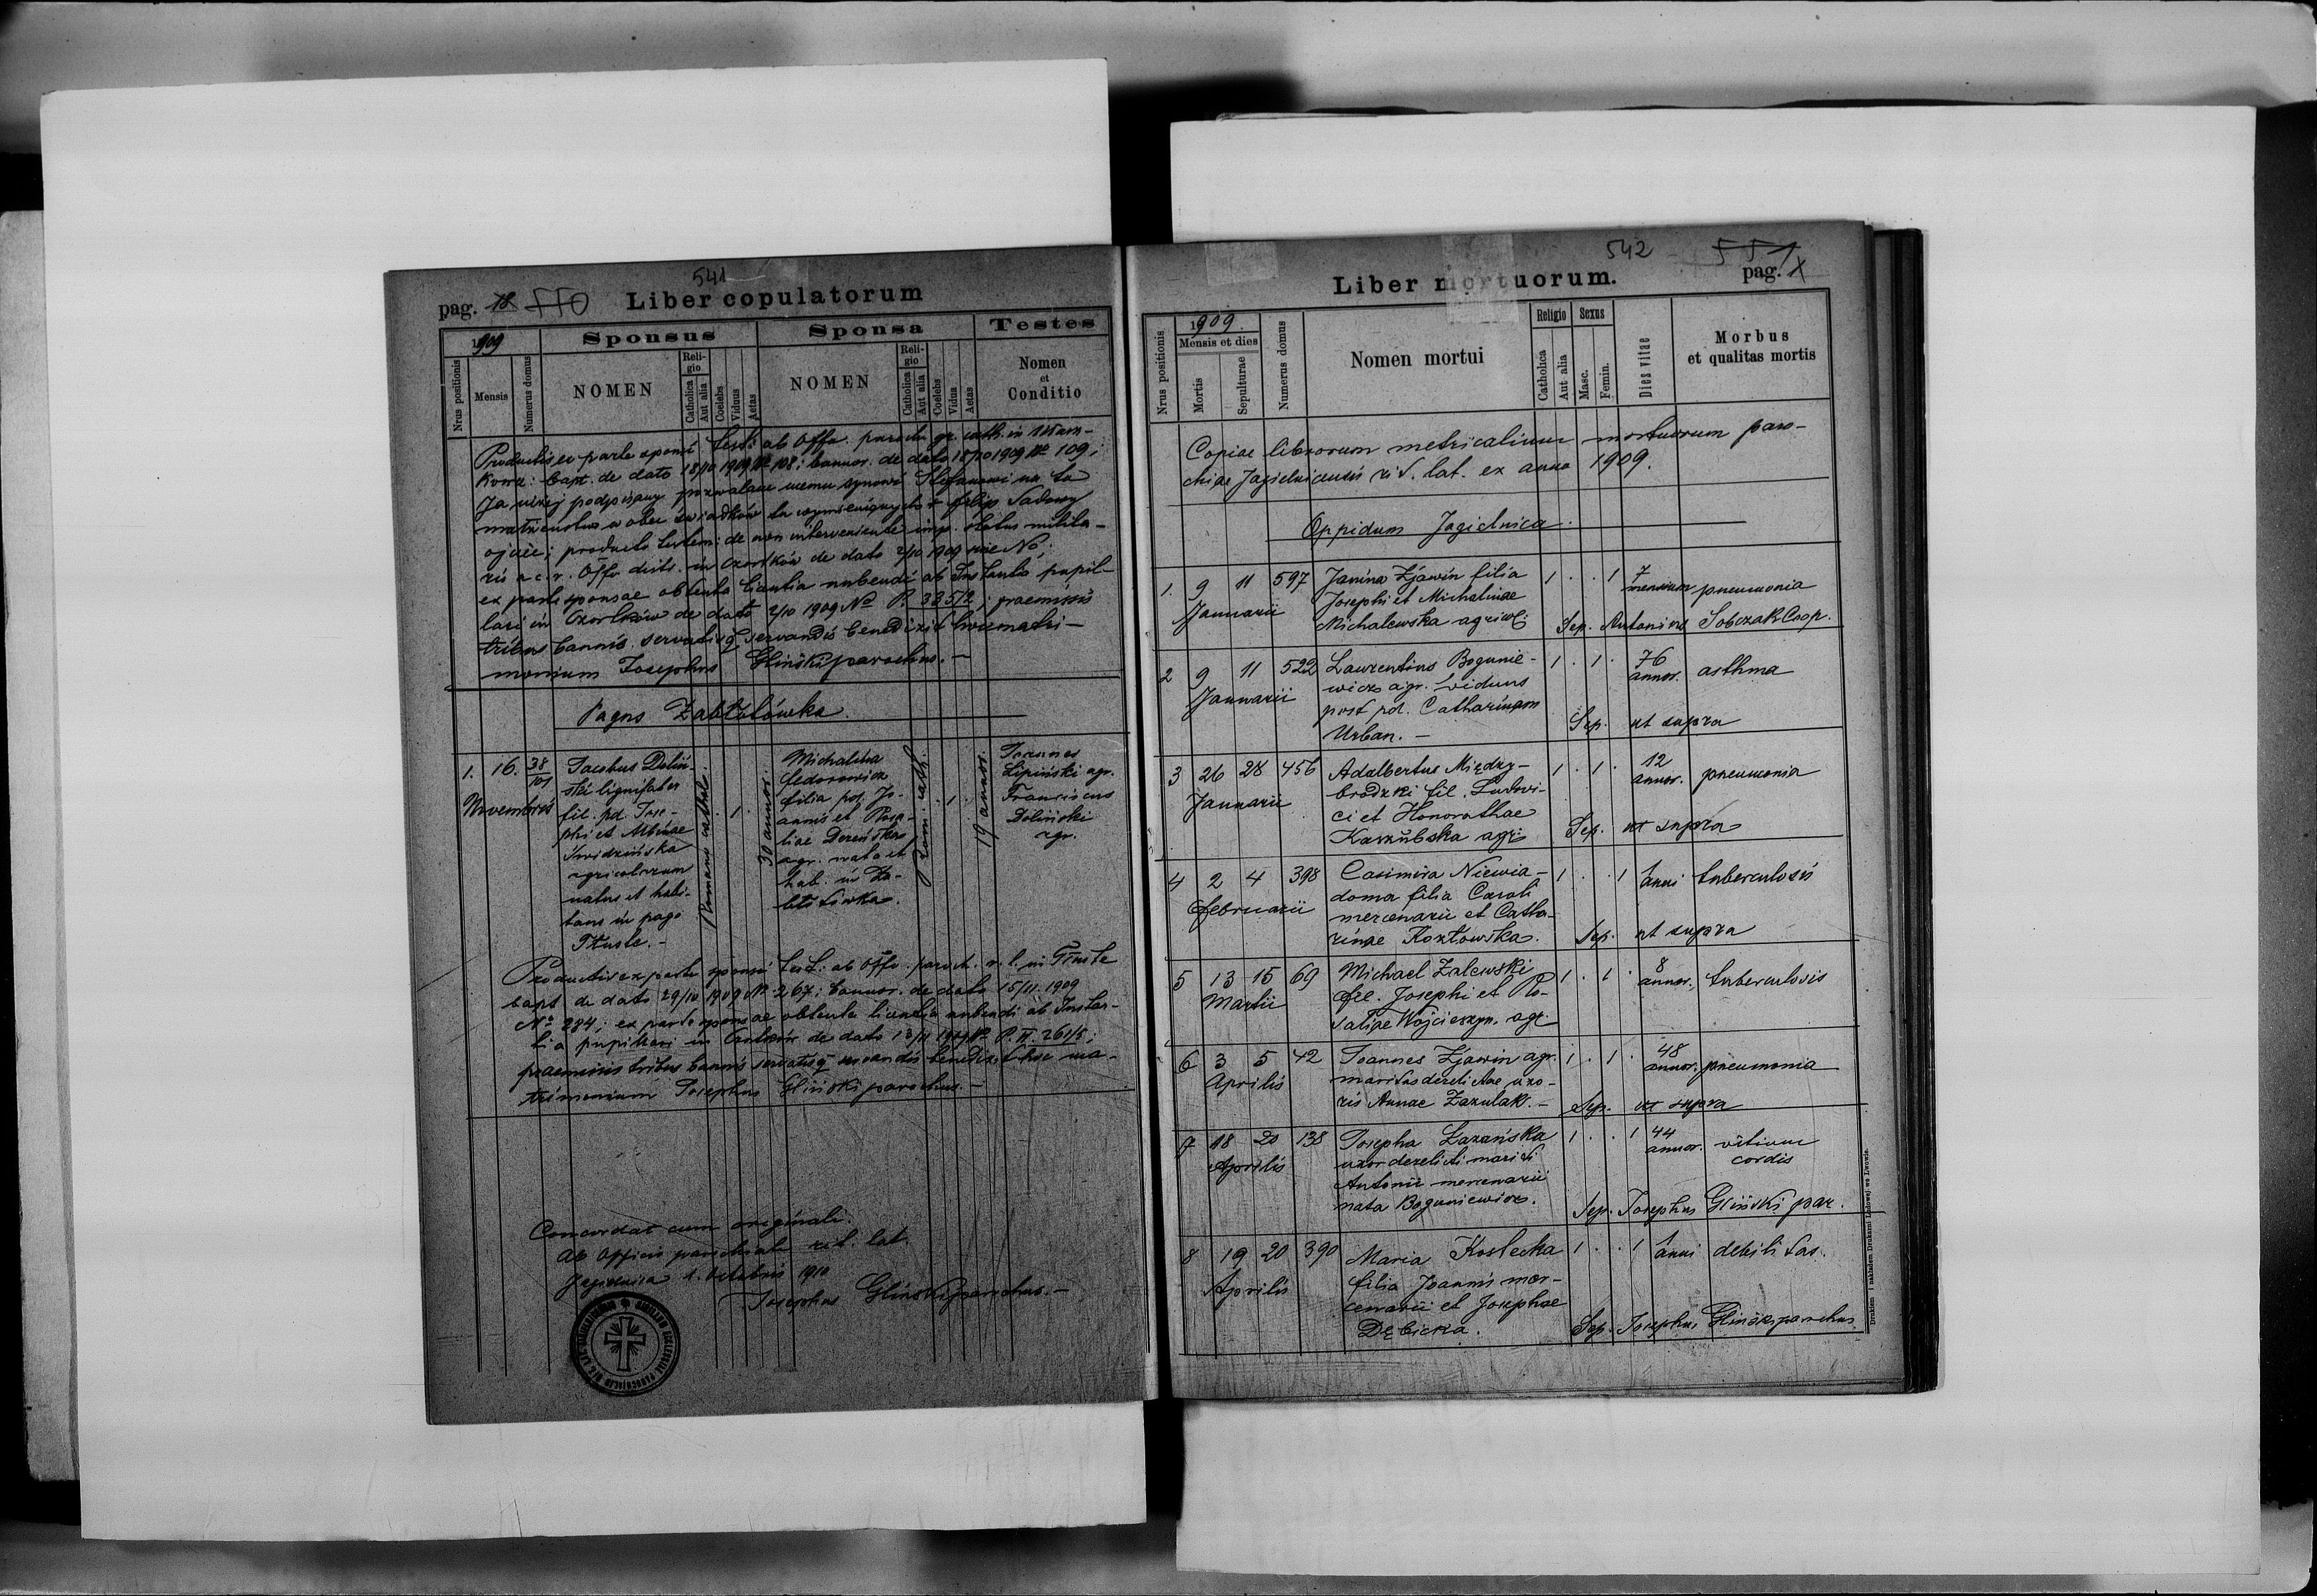 541
pag. 18 550 Liber copulatorum
1909 Sponsus Sponsa Testes
Nrus positionis Mensis Numerus domus NOMEN Religio Catholica Aut alia Coelebs Viduus Aetas NOMEN Religio Catholica Aut alia Coelebs Vidua Aetas Nomen et Conditio
Productis ex parte sponsi test: ab Offo. paroch. gr. cath. in
bapt. de dato 18/10 1909 No 108; bannor. de dato 18/10 1909 No 109;
Ja niżej podpisany pozwalam memu synowi Stefanowi na to
małżeństwo w obec świadków tu wymienionych Filip Sadowy
ojciec; producto testim: de non interveniente imp. status milita-
ris a c. r. Offo distr. in Czortków de dato 2/10 1909 sine No;
ex parte sponsae obtenta licentia nubendi ab Instantia pupil-
lari in Czortków de dato 2/10 1909 No P. 335/2; praemissis
tribus bannis, servatisq servandis benedixit hoc matri-
monium Josephus Gliński parochus. —
Pagus Zabłotówka.
1. 16. 38/101
Novembris
Jacobus Doliń-
ski lignifaber
fil. pd. Jose-
phi et Albinae
Świdzińska
agricolarum
natus et habi-
tans in pago
Tłuste. —
Romano cathol.
1
30 annor.
Michalina
Fedorowicz
filia pd. Jo-
annis et Rosa-
liae Dereńska
agr. nata et
hab. in Za-
błotówka.
rom. cath.
1
19 annor.
Joannes
Lipiński agr.
Franciscus
Doliński
agr.
Productis ex parte sponsi test: ab Offo. paroch. r. l. in Tłuste
bapt. de dato 29/10 1909 No 267; bannor. de dato 15/11 1909
No 284; ex parte sponsae obtenta licentia nubendi ab Instan-
tia pupillari in Czortków de dato 13/11 1909 No P. II. 261/5;
praemissis tribus bannis servatisq servandis benedixit hoc ma-
trimonium Josephus Gliński parochus. —
Concordat cum originali.
Ab Officio parochiali rit. lat.
Jagielnica 1. Octobris 1910
Josephus Gliński parochus. —
542 551
Liber mortuorum. pag. 1
1909.
Nrus positionis Mensis et dies Mortis Sepulturae Numerus domus Nomen mortui Religio Catholica Aut alia Sexus Masc. Femin. Dies vitae Morbus et qualitas mortis
Copiae librorum metricalium mortuorum paro-
chiae Jagielnicensis rit. lat. ex anno 1909.
Oppidum Jagielnica.
1. 9 11 597 Janina Zjawin filia 1 . . 1 7 mensium pneumonia
Januarii Josephi et Michalinae
Michalewska agricol. Sep. Antoninus Sobczak Coop.
2 9 11 522 Laurentius Bogunie- 1 . 1 . 76 annor. asthma
Januarii wicz agr. viduus
post pd. Catharinam Sep. ut supra
Urban. —
3 26 28 456 Adalbertus Między- 1 . 1 . 12 annor. pneumonia
Januarii brodzki fil. Ludovi-
ci et Honorathae Sep. ut supra
Kaszubska agr.
4 2 4 398 Casimira Niewia- 1 . . 1 1 anni tuberculosis
Februarii doma filia Caroli
mercenarii et Catha-
rinae Kozłowska. Sep. ut supra
5 13 15 69 Michael Zalewski 1 . 1 . 8 annor. tuberculosis
Martii fil. Josephi et Ro-
saliae Wojcieszyn. agr.
6 3 5 42 Joannes Zjawin agr. 1 . 1 . 48 annor. pneumonia
Aprilis maritus derelictae uxo-
ris Annae Zazulak. — Sep. ut supra
7 18 20 138 Josepha Łazańska 1 . . 1 44 annor. vitium cordis
Aprilis uxor derelicti mariti
Antonii mercenarii
nata Boguniewicz. Sep. Josephus Gliński par.
8 19 20 390 Maria Kostecka 1 . . 1 1 anni debilitas.
Aprilis filia Joannis mer-
cenarii et Josephae
Dębicka. Sep. Josephus Gliński parochus.
Drukiem i nakładem Drukarni Ludowej we Lwowie.